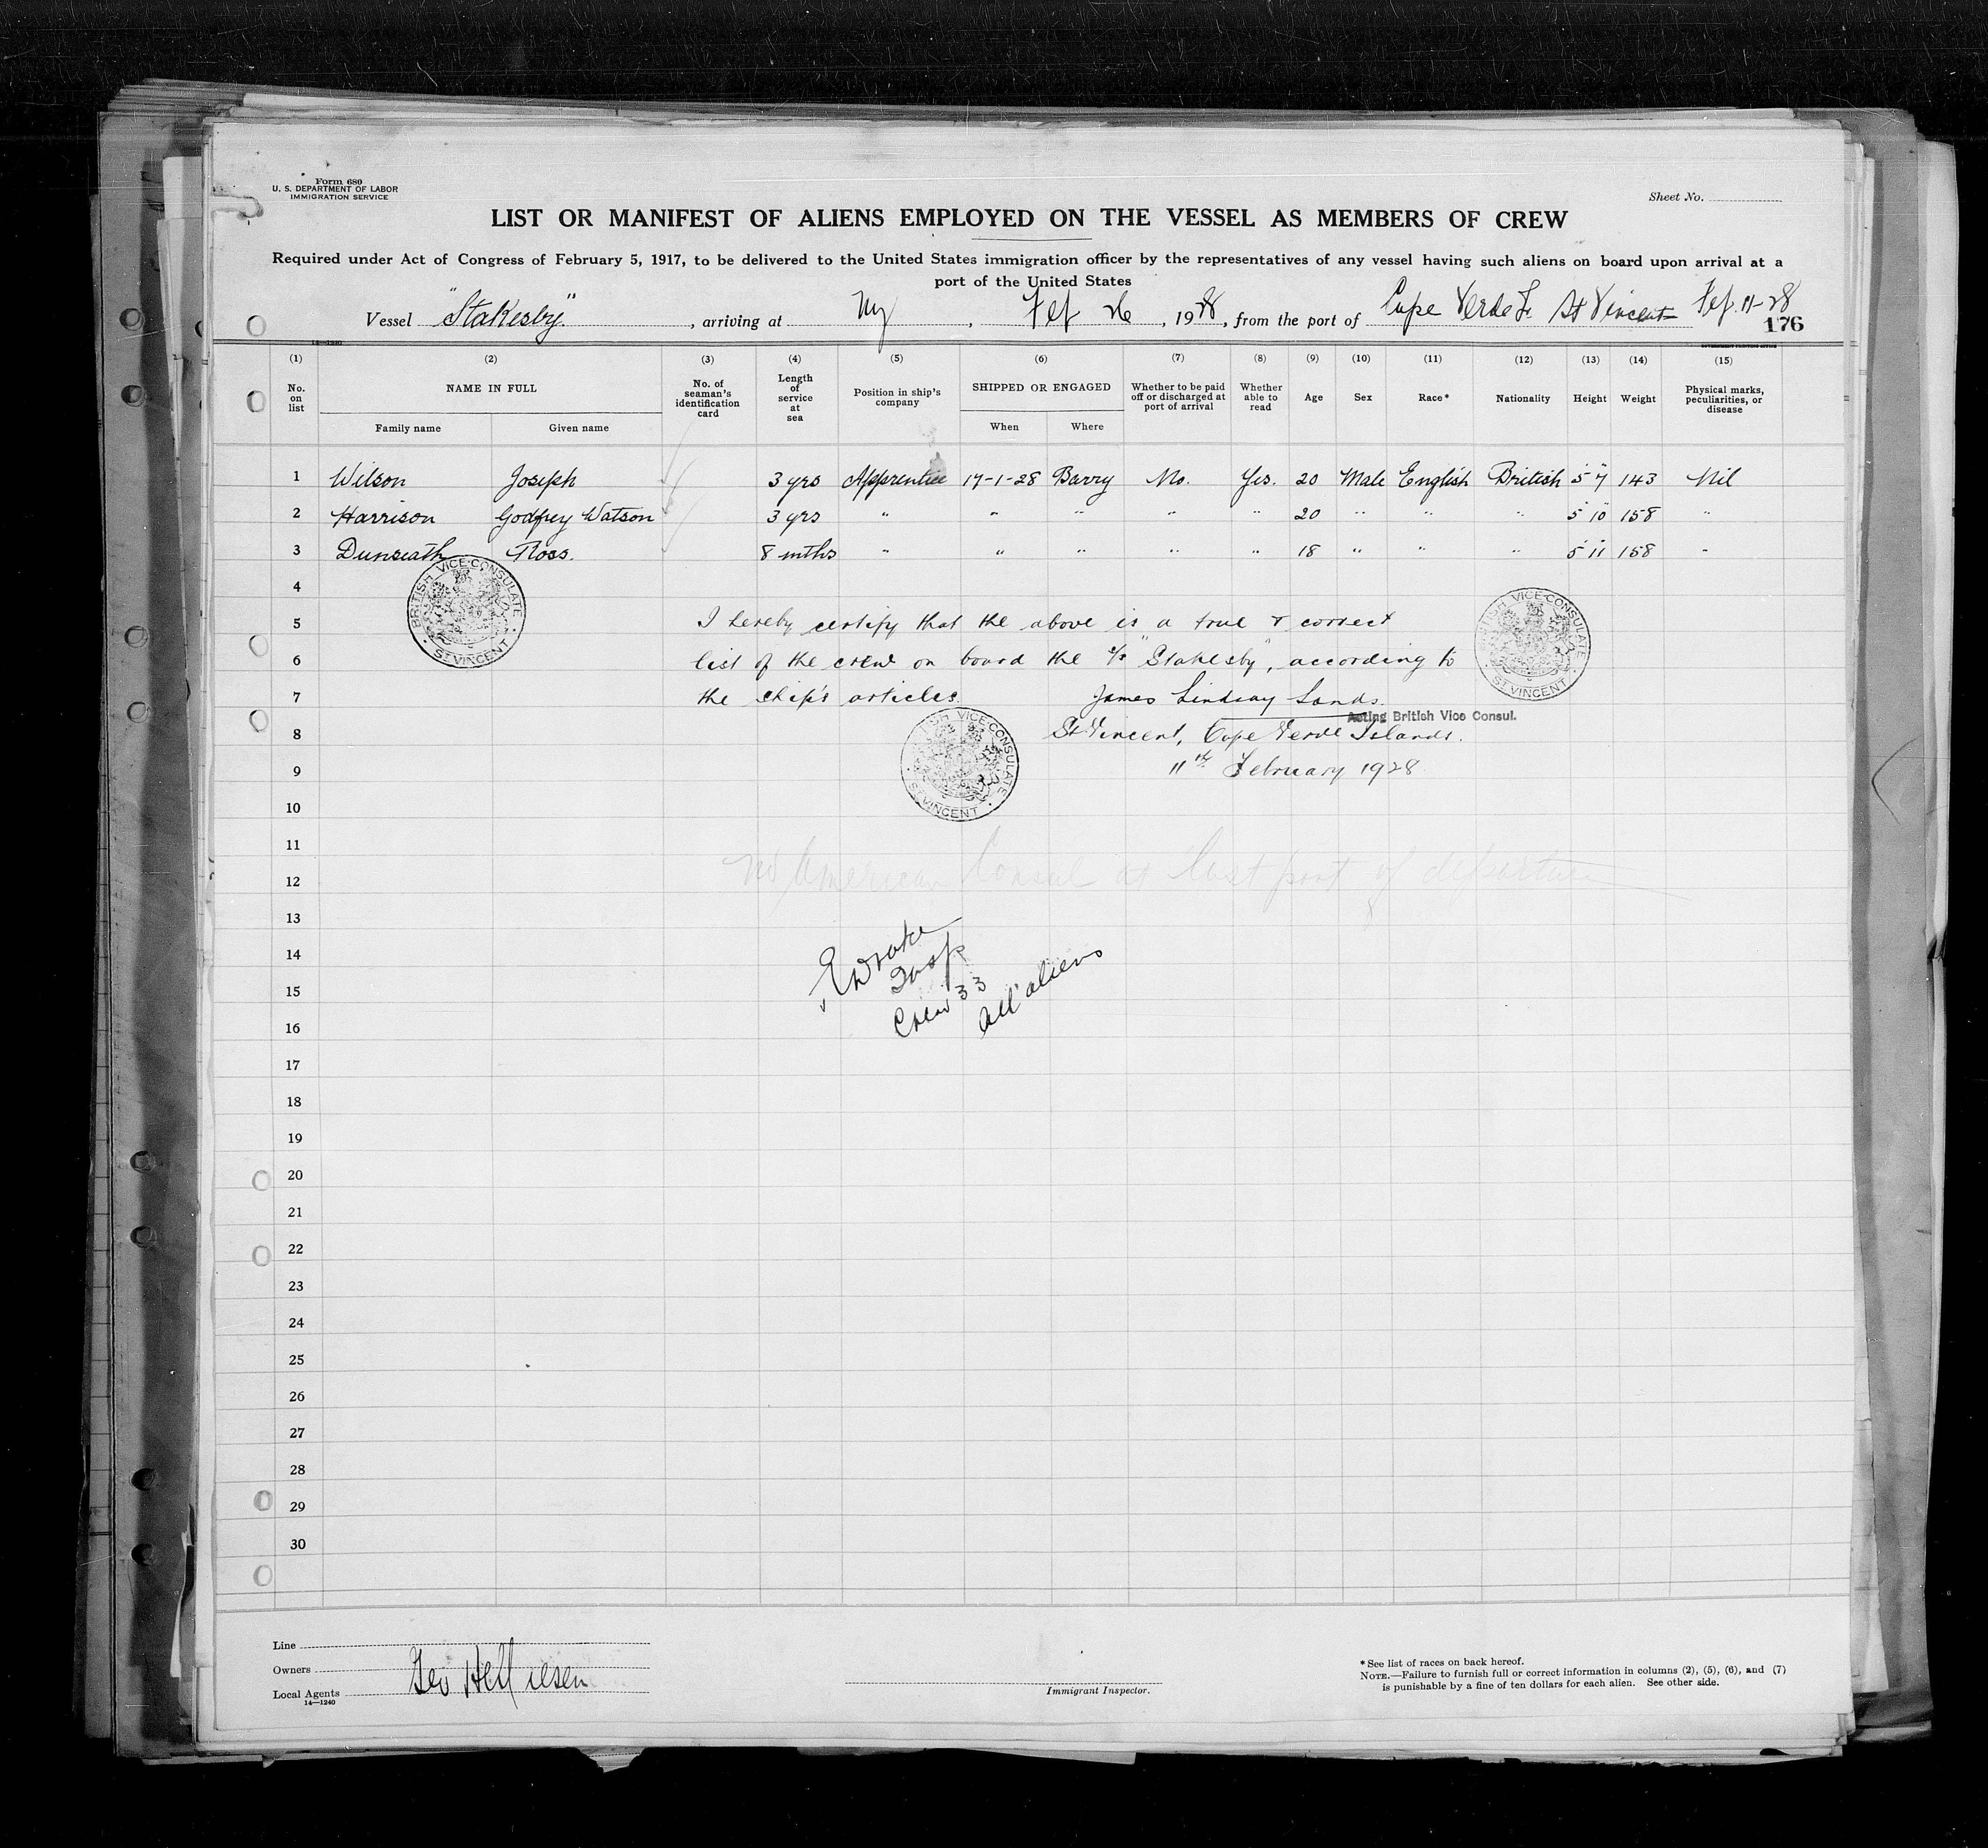 Form 680
U. S. DEPARTMENT OF LABOR
IMMIGRATION SERVICE
Sheet No.
LIST OR MANIFEST OF ALIENS EMPLOYED ON THE VESSEL AS MEMBERS OF CREW
Required under Act of Congress of February 5, 1917, to be delivered to the United States immigration officer by the representatives of any vessel having such aliens on board upon arrival at a
port of the United States
Vessel "Stakesby", arriving at Ny, Feb 26, 1928, from the port of Cape Verde I. St Vincent Feb. 11-28
176
14—1240
GOVERNMENT PRINTING OFFICE
(1) (2) (3) (4) (5) (6) (7) (8) (9) (10) (11) (12) (13) (14) (15)
No. on list NAME IN FULL No. of seaman's identification card Length of service at sea Position in ship's company SHIPPED OR ENGAGED Whether to be paid off or discharged at port of arrival Whether able to read Age Sex Race* Nationality Height Weight Physical marks, peculiarities, or disease
Family name Given name When Where
1 Wilson Joseph 3 yrs Apprentice 17-1-28 Barry No. Yes. 20 Male English British 5' 7" 143 Nil
2 Harrison Godfrey Watson 3 yrs " " " " " 20 " " " 5' 10" 158 "
3 Dunseath Ross. 8 mths " " " " " 18 " " " 5' 11" 158 "
4
BRITISH VICE-CONSULATE ST VINCENT
BRITISH VICE-CONSULATE ST VINCENT
5 I hereby certify that the above is a true & correct
6 list of the crew on board the s/s "Stakesby", according to
7 the ship's articles. James Lindsay Sands.
Acting British Vice Consul.
8 St Vincent, Cape Verde Islands.
BRITISH VICE-CONSULATE ST VINCENT
9 11th February 1928
10
11
No American Consul at last port of departure
12
13
14
15
Crew 33
All aliens
16
17
18
19
20
21
22
23
24
25
26
27
28
29
30
Line
Owners
Local Agents
14—1240
Immigrant Inspector.
*See list of races on back hereof.
NOTE.—Failure to furnish full or correct information in columns (2), (5), (6), and (7)
is punishable by a fine of ten dollars for each alien. See other side.